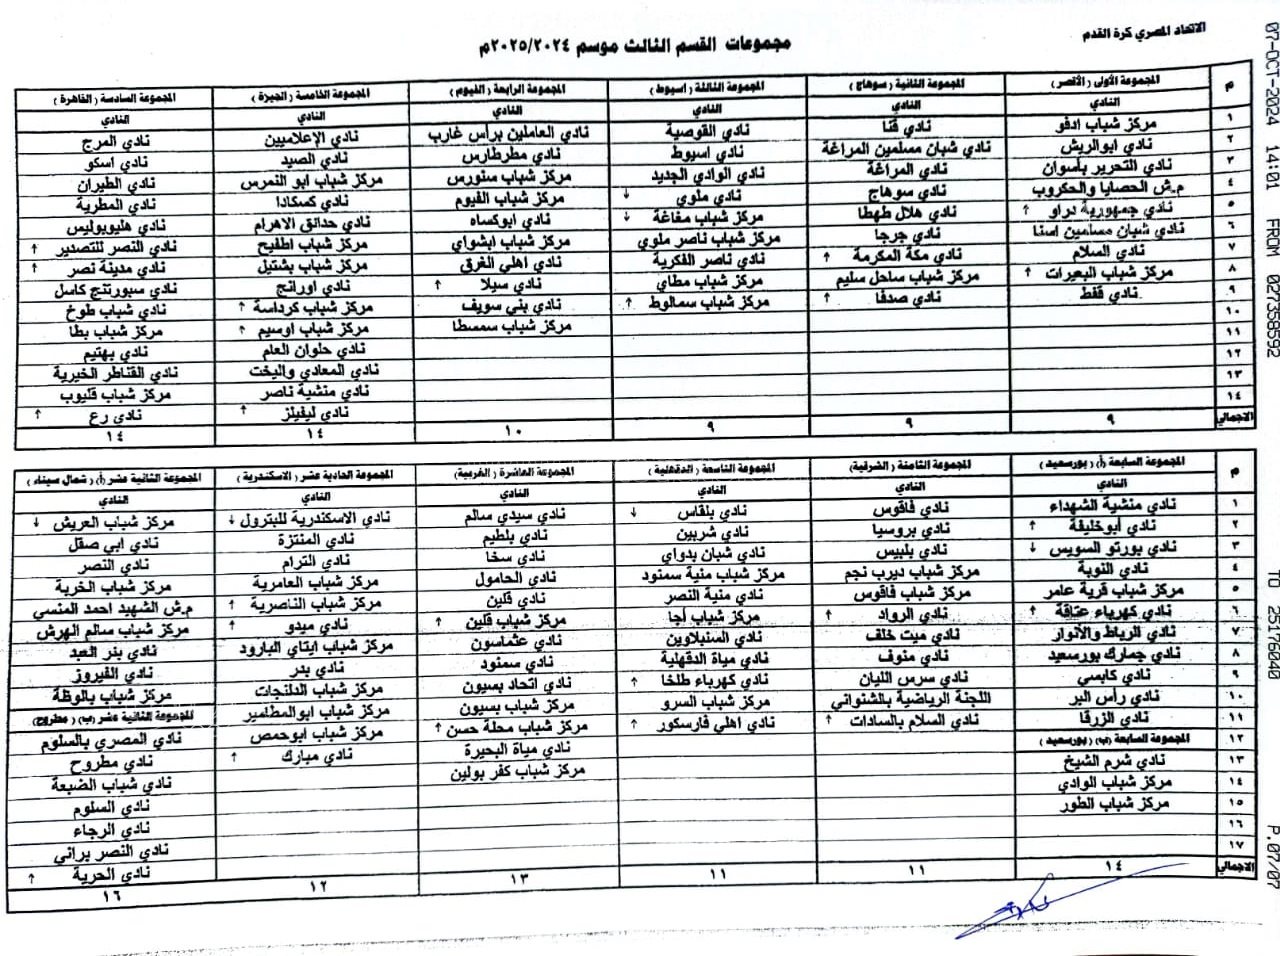 الاتحاد المصري كرة القدم
مجموعات القسم الثالث موسم ٢٠٢٥/٢٠٢٤م
م | المجموعة الأولى ( الأقصر ) | المجموعة الثانية ( سوهاج ) | المجموعة الثالثة ( اسيوط ) | المجموعة الرابعة ( الفيوم ) | المجموعة الخامسة ( الجيزة ) | المجموعة السادسة ( القاهرة )
النادي | النادي | النادي | النادي | النادي | النادي
١ | مركز شباب ادفو | نادي قنا | نادي القوصية | نادي العاملين برأس غارب | نادي الإعلاميين | نادي المرج
٢ | نادي ابوالريش | نادي شبان مسلمين المراغة | نادي اسيوط | نادي مطرطارس | نادي الصيد | نادي اسكو
٣ | نادي التحرير بأسوان | نادي المراغة | نادي الوادي الجديد | مركز شباب سنورس | مركز شباب ابو النمرس | نادي الطيران
٤ | م.ش الحصايا والحكروب | نادي سوهاج | نادي ملوي ↓ | مركز شباب الفيوم | نادي كسكادا | نادي المطرية
٥ | نادي جمهورية دراو ↑ | نادي هلال طهطا | مركز شباب مغاغة ↓ | نادي ابوكساه | نادي حدائق الاهرام | نادي هليوبوليس
٦ | نادي شبان مسلمين اسنا | نادي جرجا | مركز شباب ناصر ملوي | مركز شباب ابشواي | مركز شباب اطفيح | نادي النصر للتصدير ↑
٧ | نادي السلام | نادي مكة المكرمة ↑ | نادي ناصر الفكرية | نادي اهلي الغرق | مركز شباب بشتيل | نادي مدينة نصر ↑
٨ | مركز شباب البعيرات ↑ | مركز شباب ساحل سليم | مركز شباب مطاي | نادي سيلا ↑ | نادي اورانج | نادي سبورتنج كاسل
٩ | نادي قفط | نادي صدفا ↑ | مركز شباب سمالوط ↑ | نادي بني سويف | مركز شباب كرداسة ↑ | نادي شباب طوخ
١٠ | مركز شباب سمسطا | مركز شباب اوسيم ↑ | مركز شباب بطا
١١ | نادي حلوان العام | نادي بهتيم
١٢ | نادي المعادي واليخت | نادي القناطر الخيرية
١٣ | نادي منشية ناصر | مركز شباب قليوب
١٤ | نادي ليفيلز ↑ | نادي رع ↑
الاجمالي | ٩ | ٩ | ٩ | ١٠ | ١٤ | ١٤
م | المجموعة السابعة (أ) ( بورسعيد ) | المجموعة الثامنة ( الشرقية) | المجموعة التاسعة ( الدقهلية ) | المجموعة العاشرة ( الغربية) | المجموعة الحادية عشر ( الاسكندرية ) | المجموعة الثانية عشر (أ) ( شمال سيناء )
النادي | النادي | النادي | النادي | النادي | النادي
١ | نادي منشية الشهداء | نادي فاقوس | نادي بلقاس ↓ | نادي سيدي سالم | نادي الاسكندرية للبترول ↓ | مركز شباب العريش ↓
٢ | نادي أبوخليفة ↑ | نادي بروسيا | نادي شربين | نادي بلطيم | نادي المنتزة | نادي ابي صقل
٣ | نادي بورتو السويس ↓ | نادي بلبيس | نادي شبان بدواي | نادي سخا | نادي الترام | نادي النصر
٤ | نادي النوبة | مركز شباب ديرب نجم | مركز شباب منية سمنود | نادي الحامول | مركز شباب العامرية | مركز شباب الخربة
٥ | مركز شباب قرية عامر | مركز شباب فاقوس | نادي منية النصر | نادي قلين | مركز شباب الناصرية ↑ | م.ش الشهيد احمد المنسي
٦ | نادي كهرباء عتاقة ↑ | نادي الرواد ↑ | مركز شباب أجا | مركز شباب قلين ↑ | نادي ميدو ↑ | مركز شباب سالم الهرش
٧ | نادي الرباط والأنوار | نادي ميت خلف | نادي السنبلاوين | نادي عثماسون | مركز شباب ايتاي البارود | نادي بئر العبد
٨ | نادي جمارك بورسعيد | نادي منوف | نادي مياة الدقهلية | نادي سمنود | نادي بدر | نادي الفيروز
٩ | نادي كابسي | نادي سرس الليان | نادي كهرباء طلخا ↑ | نادي اتحاد بسيون | مركز شباب الدلنجات | مركز شباب بالوظة
١٠ | نادي رأس البر | اللجنة الرياضية بالشنواني | مركز شباب السرو | مركز شباب بسيون | مركز شباب ابوالمطامير | المجموعة الثانية عشر (ب) ( مطروح)
١١ | نادي الزرقا | نادي السلام بالسادات ↑ | نادي اهلي فارسكور ↑ | مركز شباب محلة حسن ↑ | مركز شباب ابوحمص | نادي المصري بالسلوم
١٢ | المجموعة السابعة (ب) ( بورسعيد ) | نادي مياة البحيرة | نادي مبارك ↑ | نادي مطروح
١٣ | نادي شرم الشيخ | مركز شباب كفر بولين | نادي شباب الضبعة
١٤ | مركز شباب الوادي | نادي السلوم
١٥ | مركز شباب الطور | نادي الرجاء
١٦ | نادي النصر براني
١٧ | نادي الحرية ↑
الاجمالي | ١٤ | ١١ | ١١ | ١٣ | ١٢ | ١٦
07-OCT-2024 14:01 FROM 027358592 TO 25176040 P.07/07